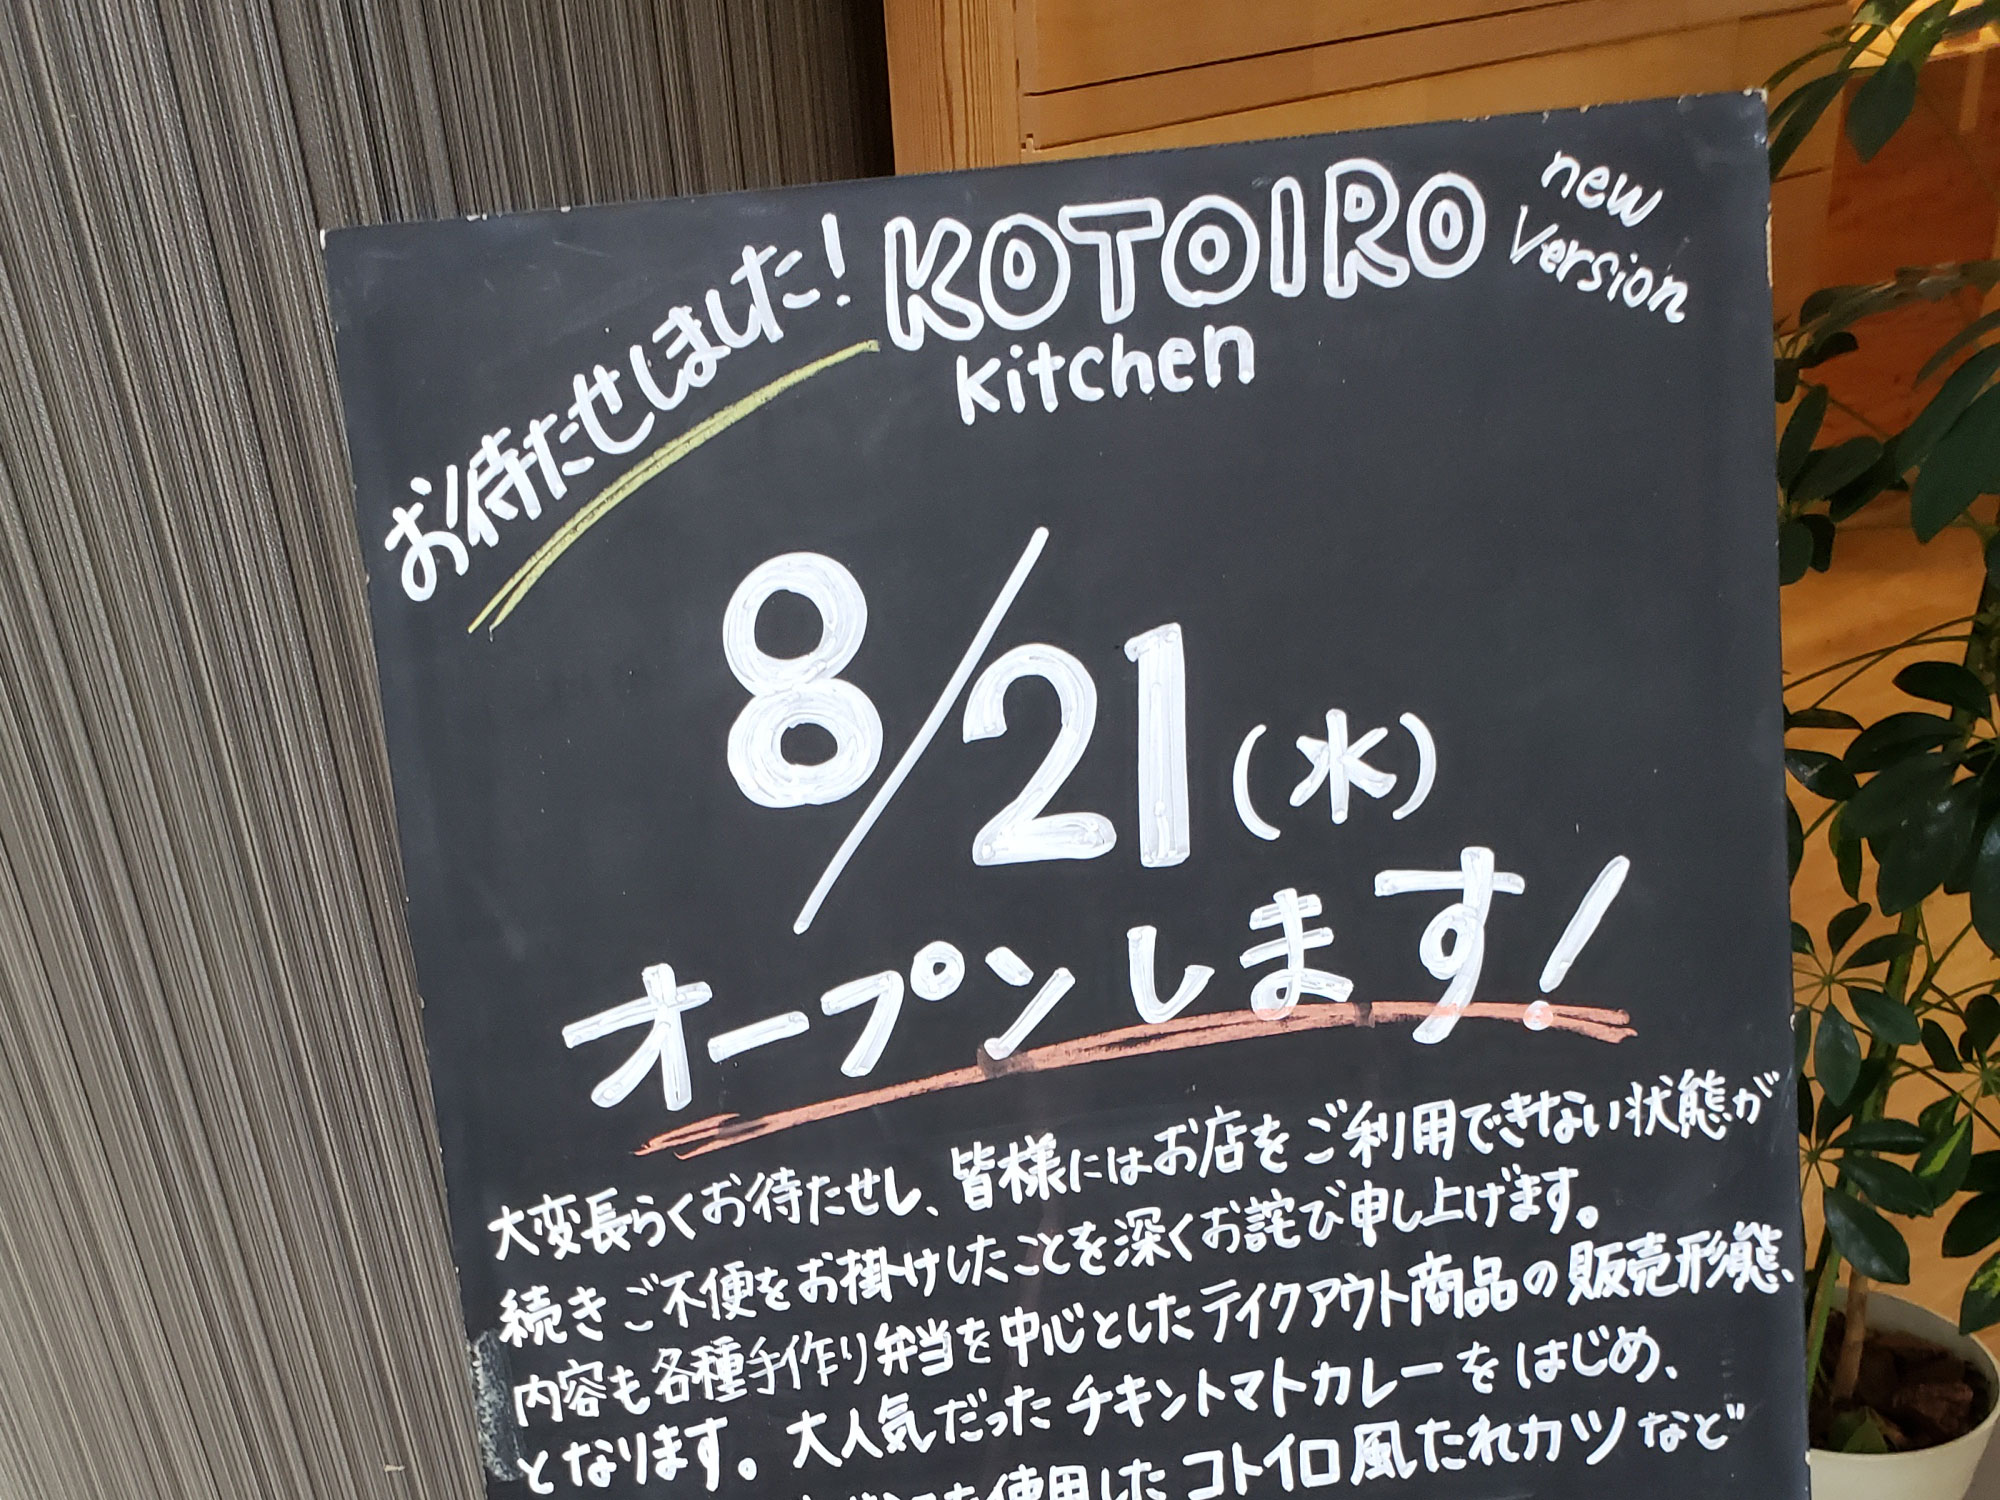 お待たせしました!
KOTOIRO
new
version
kitchen
8/21(水)
オープンします!
大変長らくお待たせし、皆様にはお店をご利用できない状態が
続きご不便をお掛けしたことを深くお詫び申し上げます。
内容も各種手作り弁当を中心としたテイクアウト商品の販売形態、
となります。大人気だったチキントマトカレーをはじめ、
を使用したコトイロ風たれカツなど